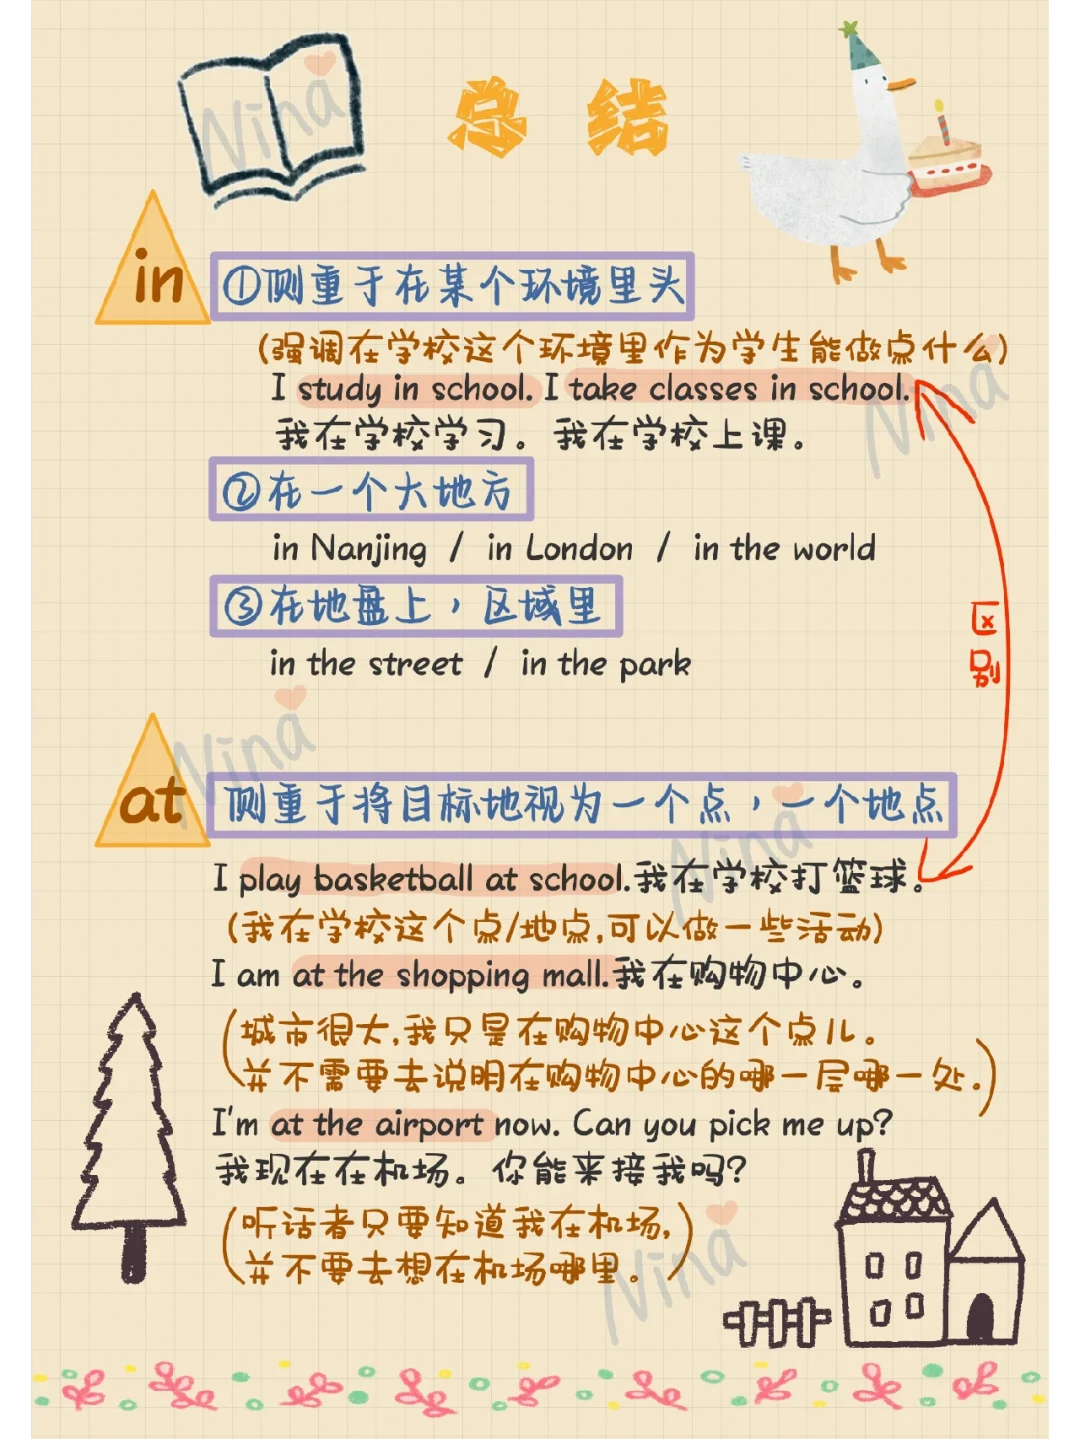 Nina
总结
in
①侧重于在某个环境里头
(强调在学校这个环境里作为学生能做点什么)
I study in school. I take classes in school.
我在学校学习。我在学校上课。
Nina
②在一个大地方
in Nanjing / in London / in the world
③在地盘上，区域里
in the street / in the park
区别
Nina
at
侧重于将目标地视为一个点，一个地点
Nina
I play basketball at school.我在学校打篮球。
(我在学校这个点/地点,可以做一些活动)
I am at the shopping mall.我在购物中心。
(城市很大,我只是在购物中心这个点儿。
并不需要去说明在购物中心的哪一层哪一处.)
I'm at the airport now. Can you pick me up?
我现在在机场。你能来接我吗?
(听话者只要知道我在机场,
并不要去想在机场哪里。)
Nina